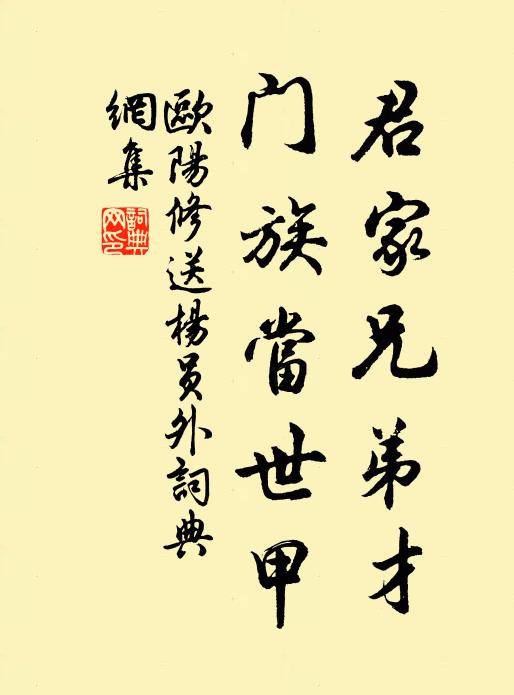 君家兄弟才
门族當世甲
歐陽修送楊員外詞典
網集
詞典网印